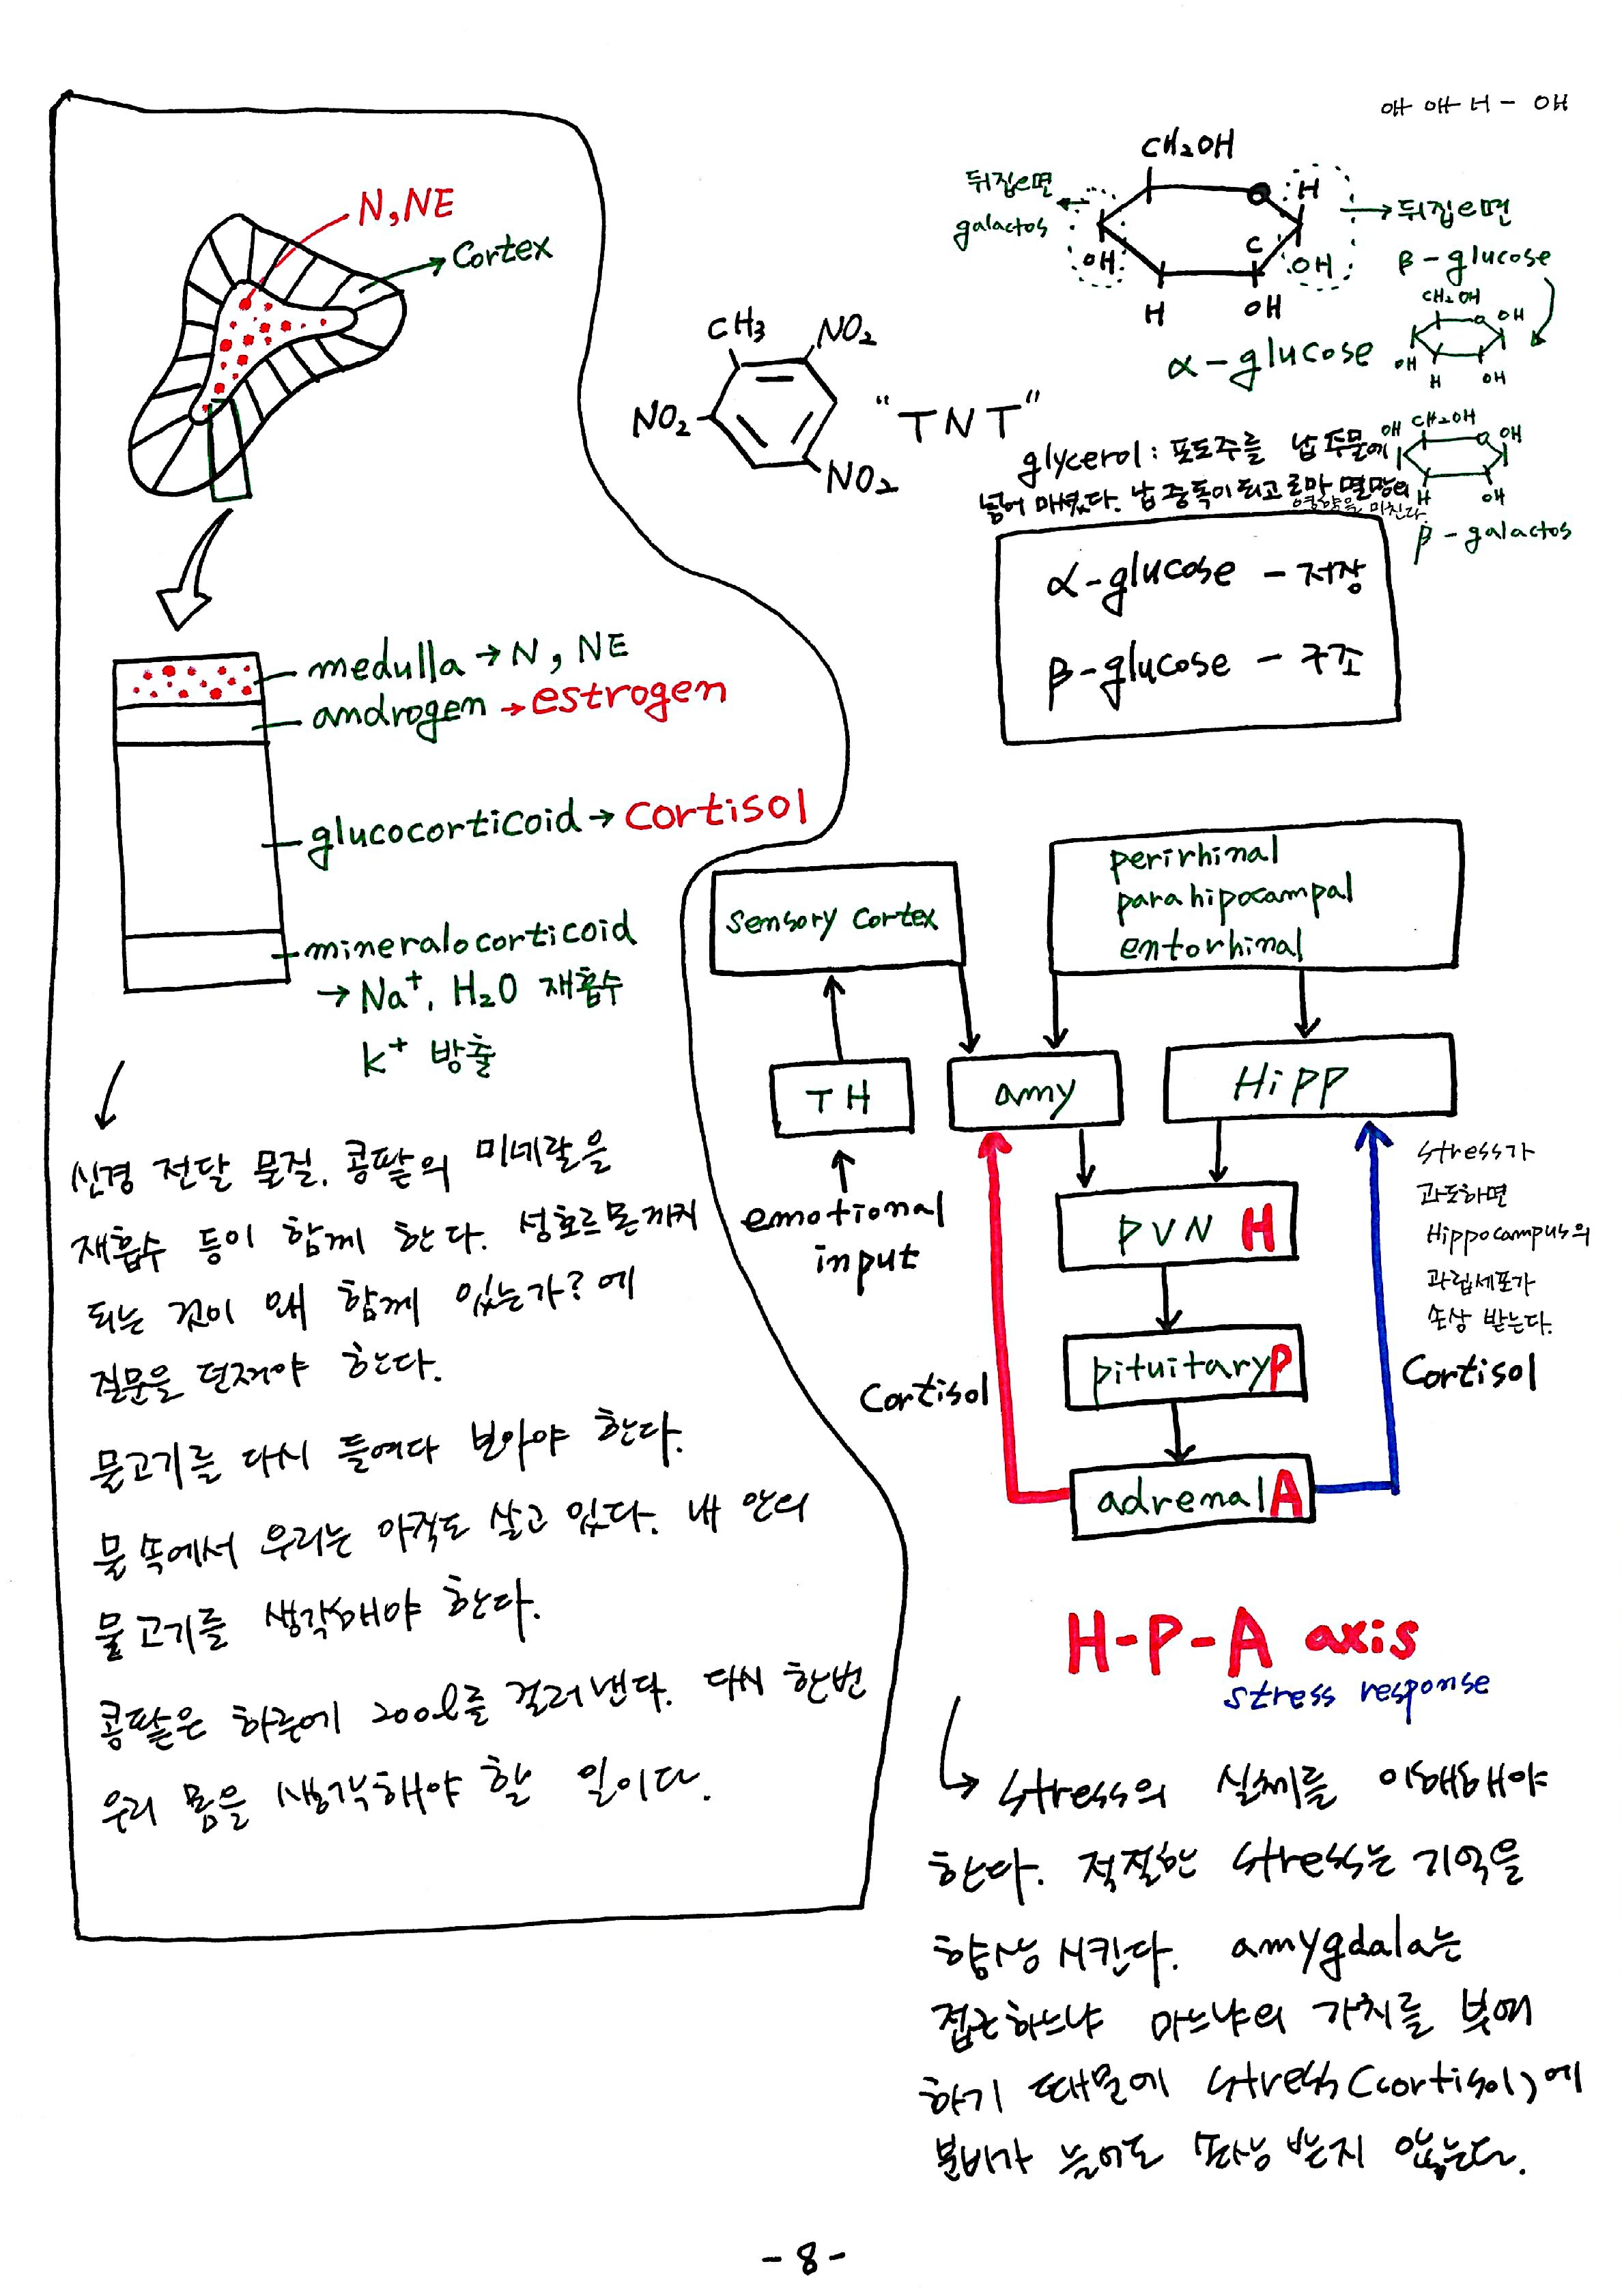 N, NE
Cortex
medulla → N, NE
androgen → estrogen
glucocorticoid → Cortisol
mineralocorticoid
→ Na⁺, H₂O 재흡수
K⁺ 방출
신경 전달 물질. 콩팥의 미네랄을
재흡수 등이 함께 한다. 성호르몬까지
되는 것이 왜 함께 있는가? 에
질문을 던져야 한다.
물고기를 다시 들여다 보아야 한다.
물 속에서 우리는 아직도 살고 있다. 내 안의
물고기를 생각해야 한다.
콩팥은 하루에 200ℓ를 걸러낸다. 다시 한번
우리 몸을 생각해야 할 일이다.
애 애 너 - 애
CH₂OH
뒤집으면
galactos
H
OH
C
OH
H
OH
→ 뒤집으면
β-glucose
α-glucose
CH₂OH
OH
OH
H
OH
CH₃
NO₂
NO₂
NO₂
"TNT"
glycerol : 포도주를 납 주물에
넣어 마셨다. 납 중독이 되고 로마 멸망의
영향을 미친다.
OH
CH₂OH
OH
H
OH
β-galactos
α-glucose - 저장
β-glucose - 구조
sensory cortex
perirhinal
parahipocampal
entorhinal
TH
amy
HiPP
emotional
input
PVN H
pituitary P
adrenal A
Cortisol
stress가
과도하면
Hippocampus의
과립세포가
손상 받는다.
Cortisol
H-P-A axis
stress response
→ stress의 실체를 이해해야
한다. 적절한 stress는 기억을
향상 시킨다. amygdala는
접근하느냐 마느냐의 가치를 부여
하기 때문에 stress(cortisol)에
분비가 늘어도 손상 받지 않는다.
- 8 -